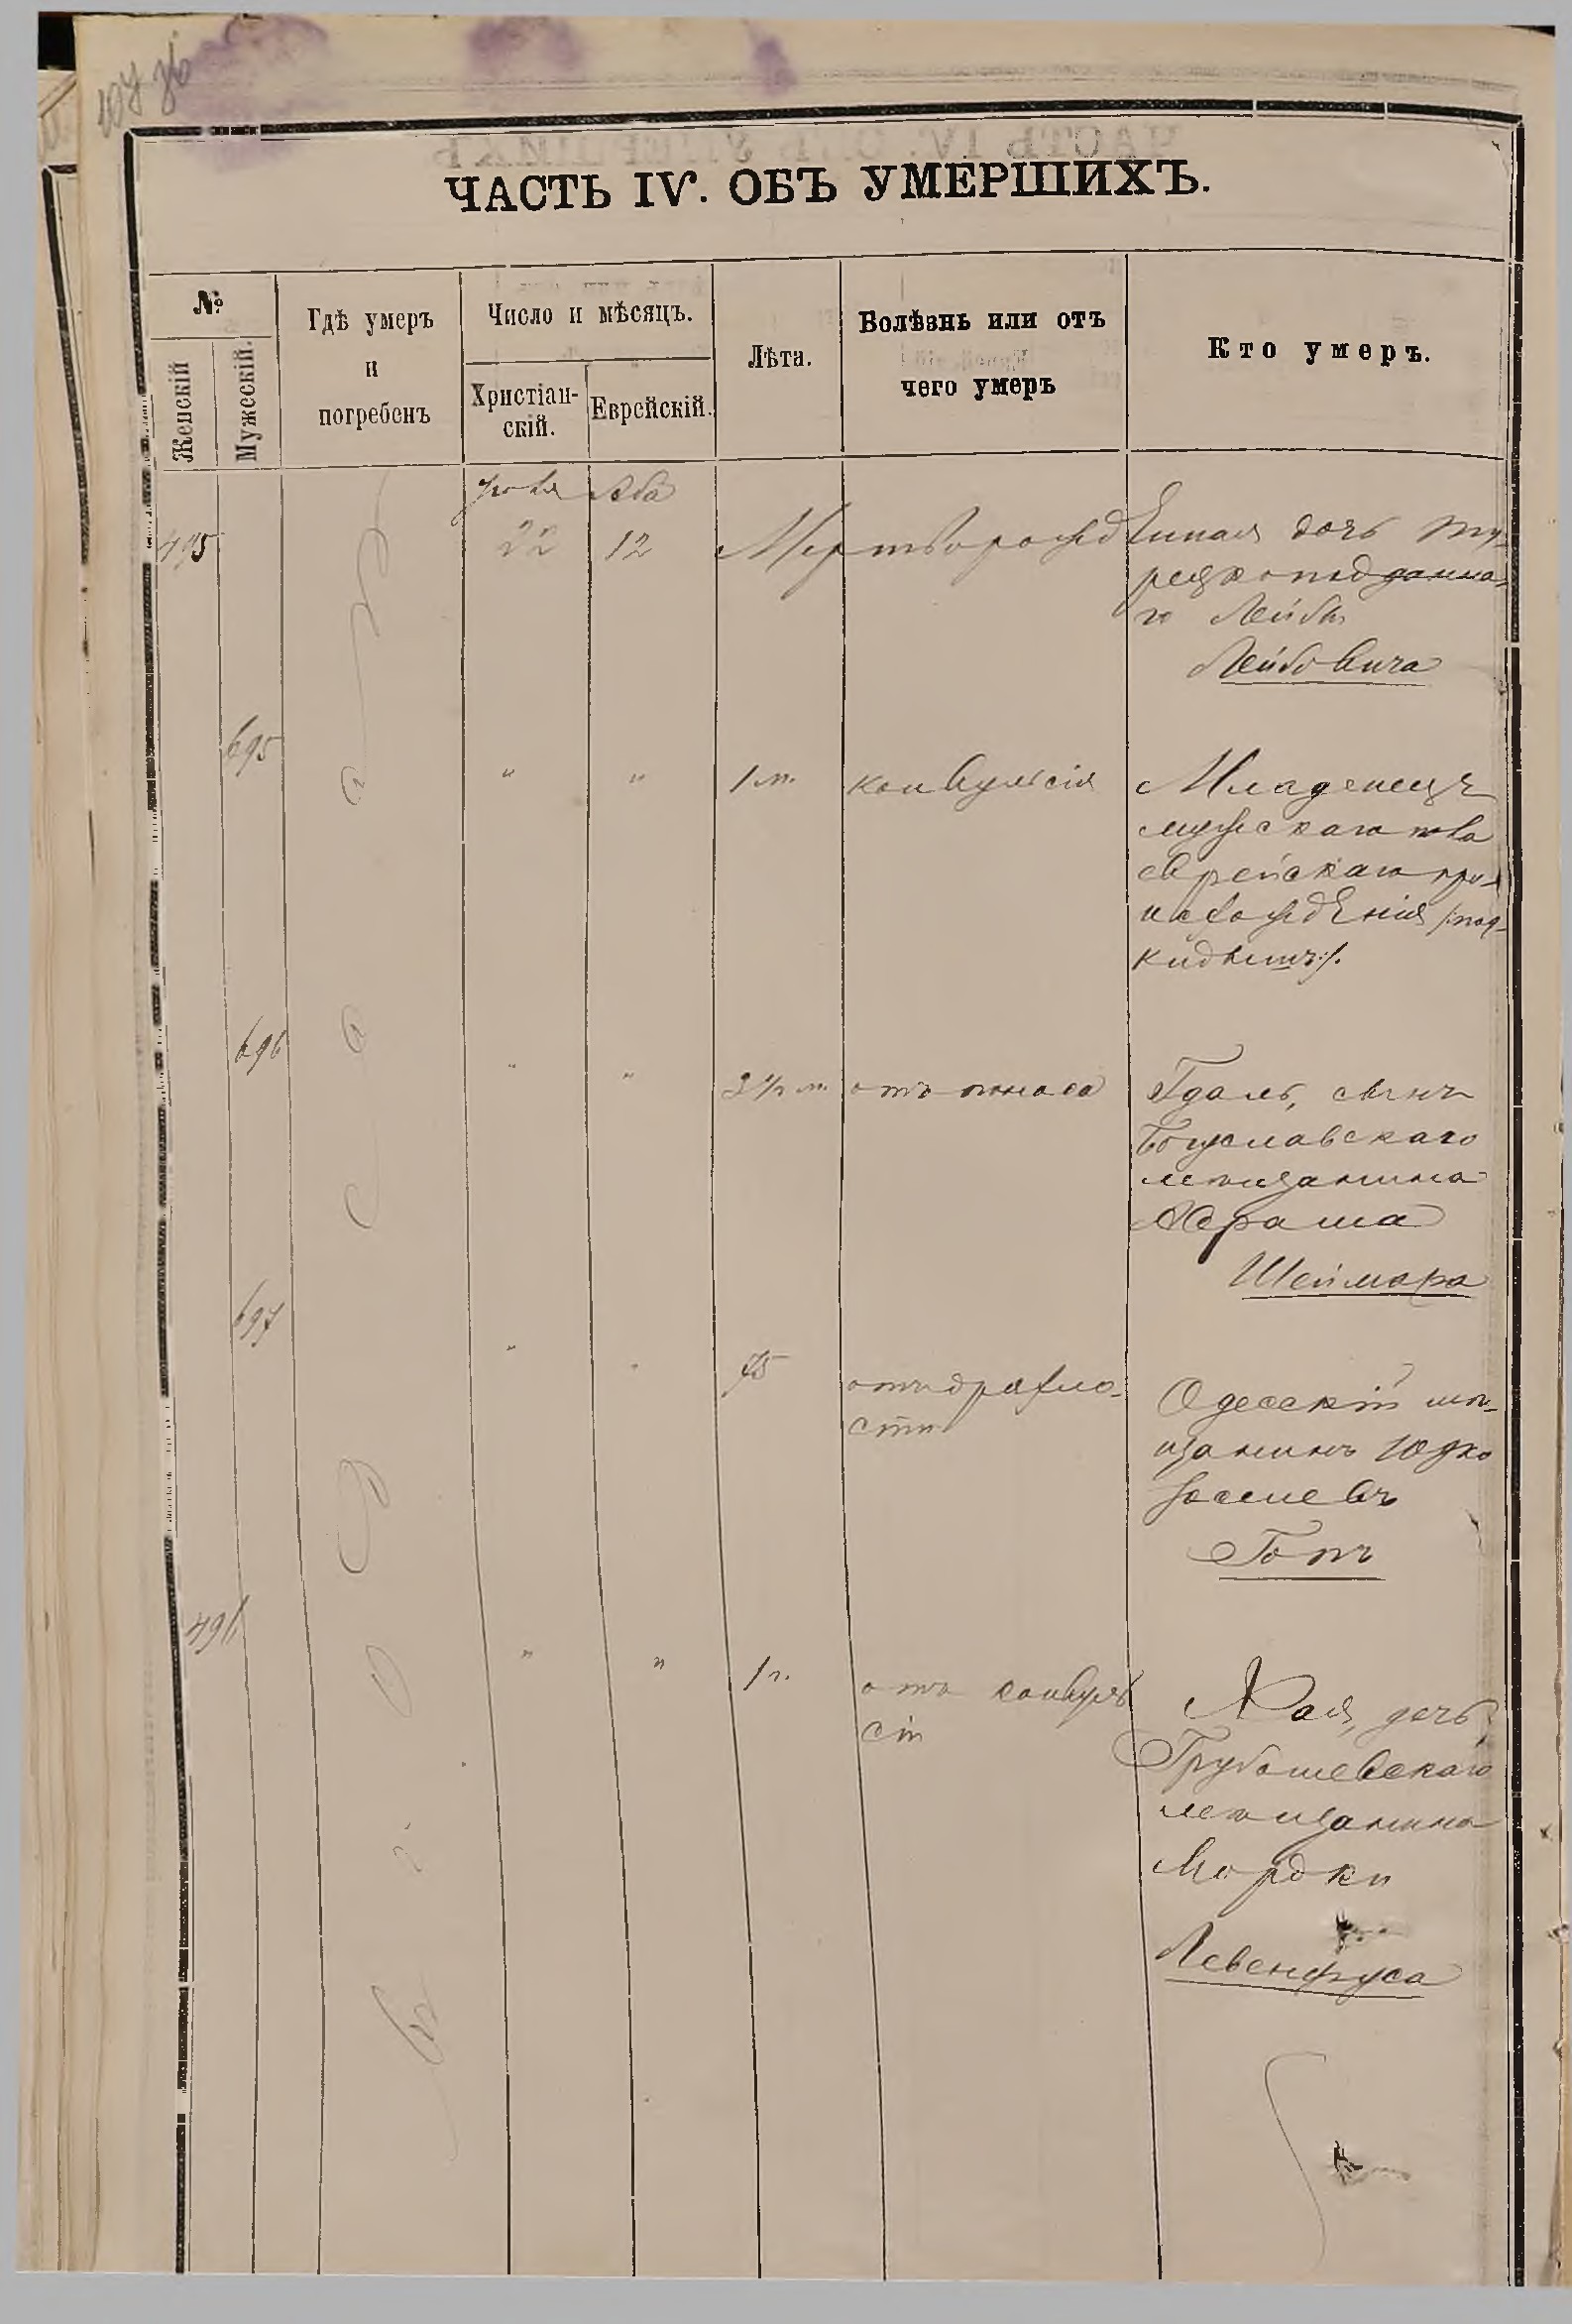 ЧАСТЬ IV. ОБЪ УМЕРШИХЪ.
№
Женскій
Мужескій.
Гдѣ умеръ
и
погребенъ
Число и мѣсяцъ.
Христіан-
скій.
Еврейскій.
Лѣта.
Болѣзнь или отъ
чего умеръ
Кто умеръ.
Іюля Аба
495 22 12 Мертворожденная дочь Ту-
рецкоподданна-
го Лейбы
Лейбовича
695 " " 1 м. конвульсія Младенецъ
мужскаго пола
еврейскаго про-
исхожденія /:под-
кидышъ:/.
696 " " 3 1/2 м. отъ поноса Гдаль, сынъ
Богуславскаго
мѣщанина
Абрама
Шеймара
697 " " 75 отъ дряхло-
сти
Одесскій мѣ-
щанинъ Юдко
Іосіевъ
Гопъ
496 " " 1 г. отъ конвуль
сіи
Хая, дочь
Грубошевскаго
мѣщанина
Мордки
Левенфуса